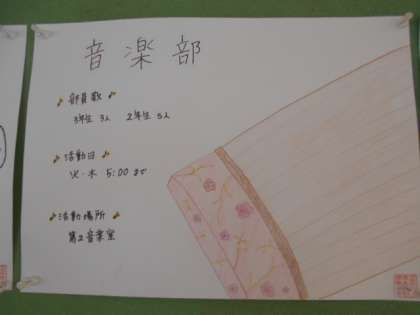 音楽部
♪部員数♪
3年生 3人 2年生 5人
♪活動日♪
火・木 5:00まで
♪活動場所♪
第2音楽室